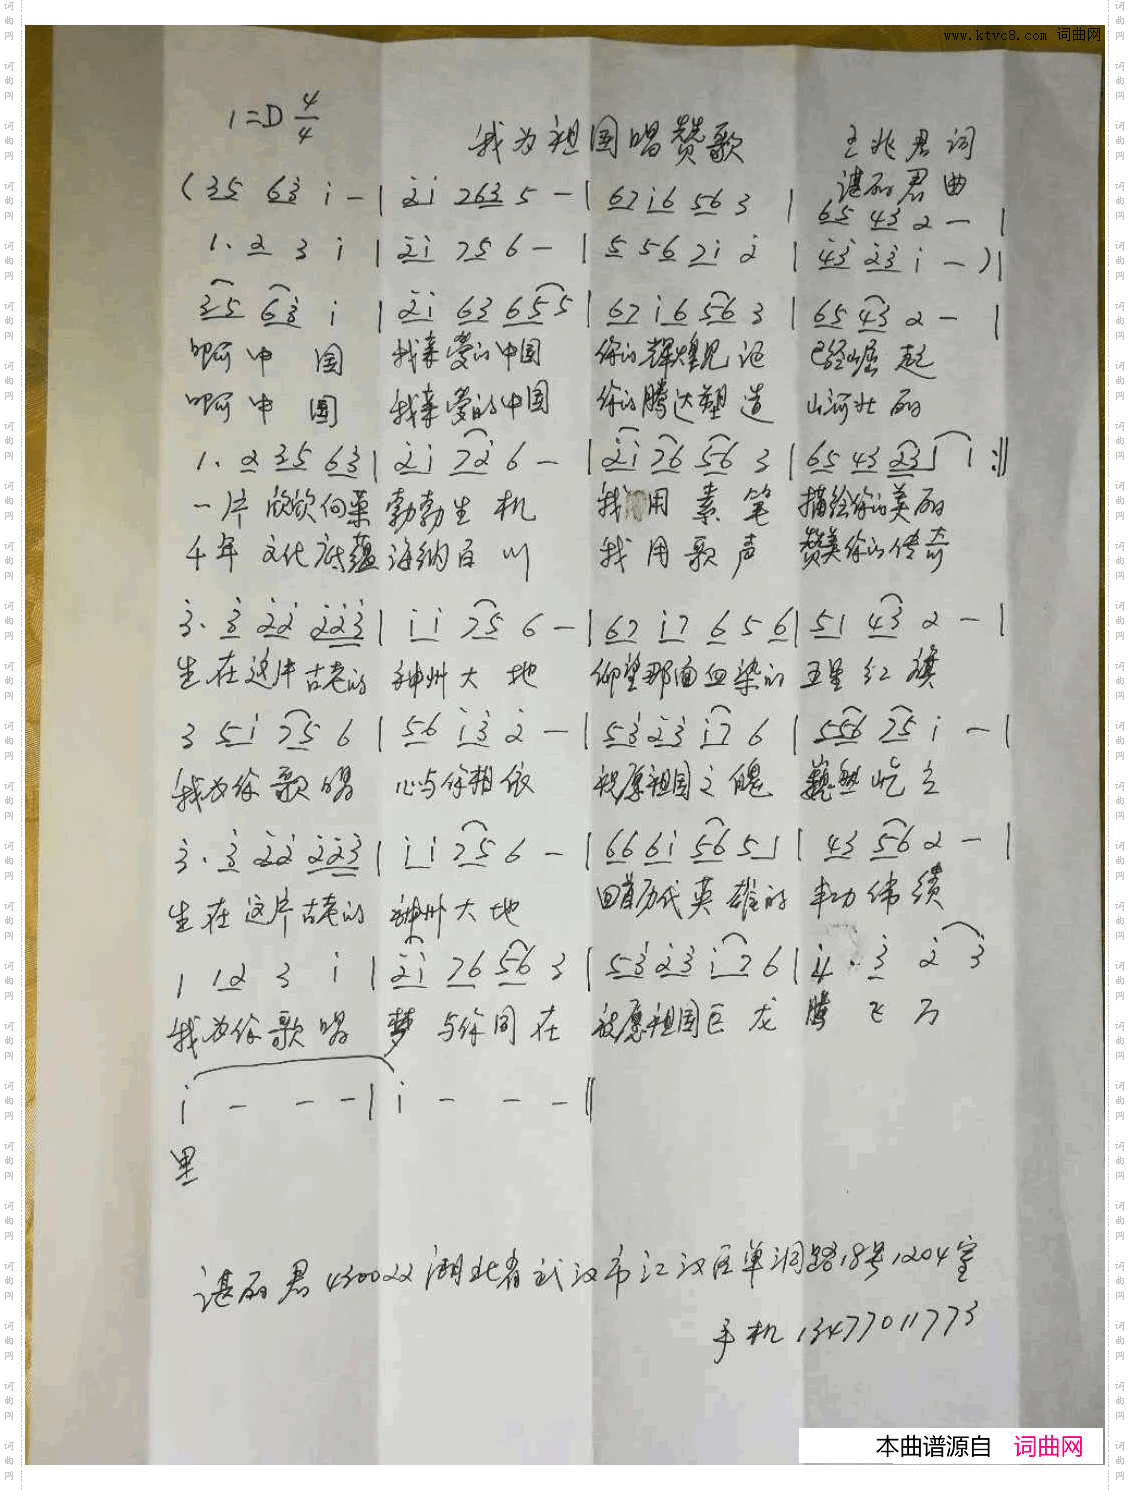 www.ktvc8.com 词曲网
1=D 4/4
我为祖国唱赞歌
王兆君词
谌丽君曲
(35 63 i - | 2i 763 5 - | 67 i6 56 3 | 65 43 2 - |
1. 2 3 i | 2i 75 6 - | 5 56 7i 2 | 43 23 i - )|
35 63 i | 2i 63 655 | 67 i6 56 3 | 65 43 2 - |
啊 中 国 我亲爱的中国 你的辉煌见证 已经崛起
啊 中 国 我亲爱的中国 你的腾达塑造 山河壮丽
1. 2 35 63 | 2i 72 6 - | 2i 76 56 3 | 65 43 231 1 :||
一片 欣欣向荣 勃勃生机 我用素笔 描绘你的美丽
千年 文化底蕴 海纳百川 我用歌声 赞美你的传奇
3. 3 22 223 | i i 75 6 - | 67 i7 6 5 6 | 51 43 2 - |
生在这片古老的 神州大地 仰望那面血染的 五星红旗
3 5i 75 6 | 56 i3 2 - | 53 23 i7 6 | 556 75 i - |
我为你歌唱 心与你相依 祝愿祖国之魄 巍然屹立
3. 3 22 223 | i i 75 6 - | 66 6i 56 51 | 43 56 2 - |
生在这片古老的 神州大地 回首历代英雄的 丰功伟绩
1 12 3 i | 2i 76 56 3 | 53 23 i76 | i. 3 2 3
我为你歌唱 梦与你同在 祝愿祖国巨龙 腾飞万
i - - - | i - - - ||
里
谌丽君430022湖北省武汉市江汉区单洞路18号1204室
手机13477011773
本曲谱源自 词曲网